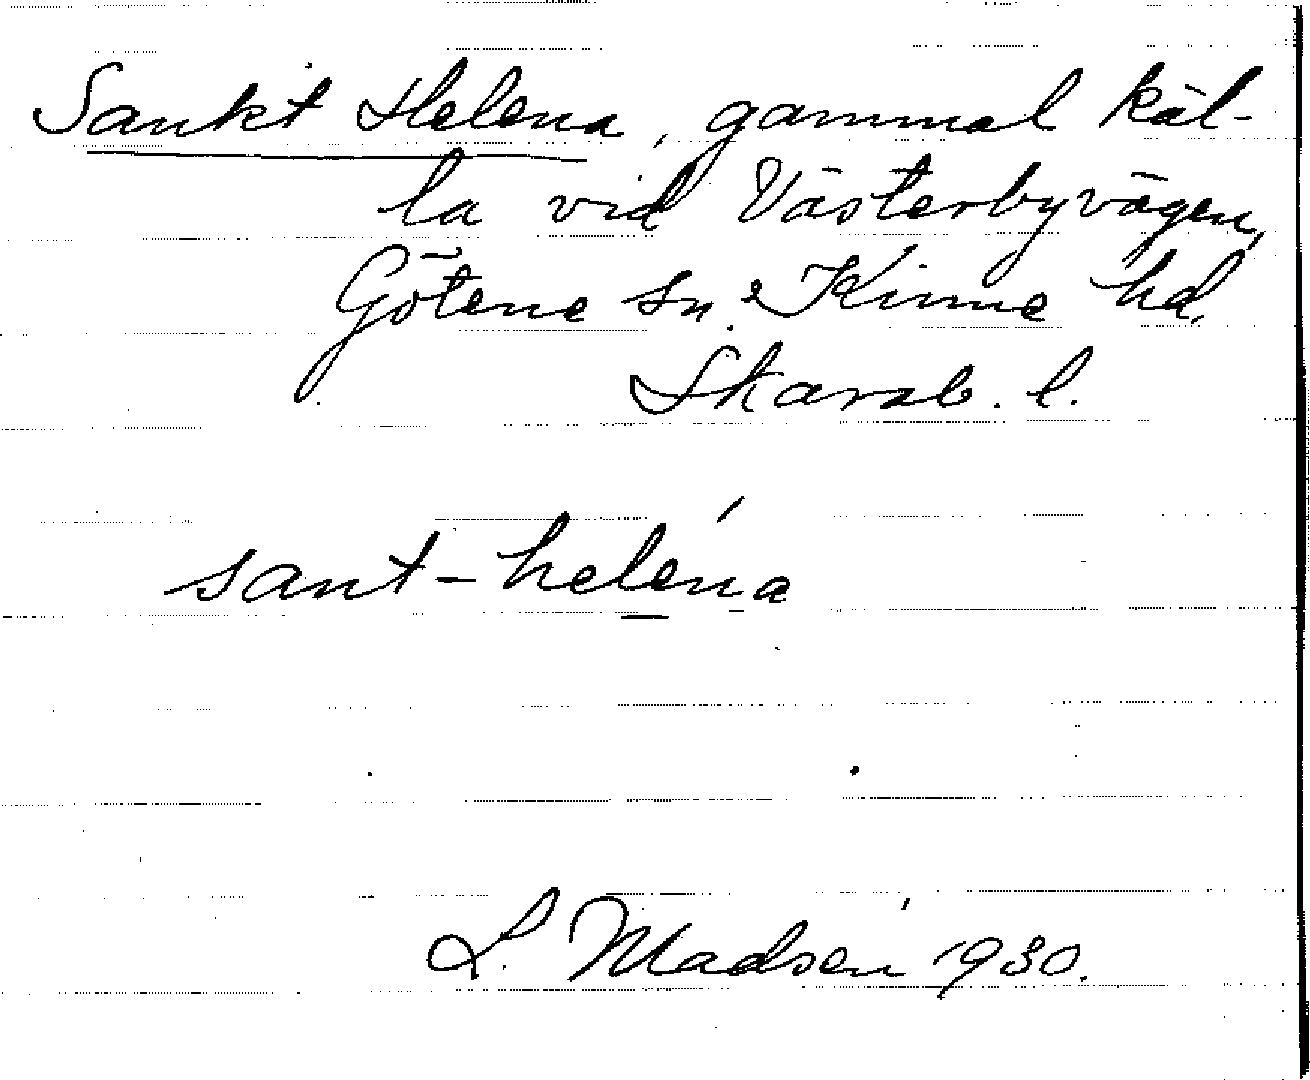 Sankt Helena, gammal käl-
la vid Västerbyvägen,
Götene sn. Kinne hd,
Skarab. l.
sant-heléna
L. Madsén 1930.